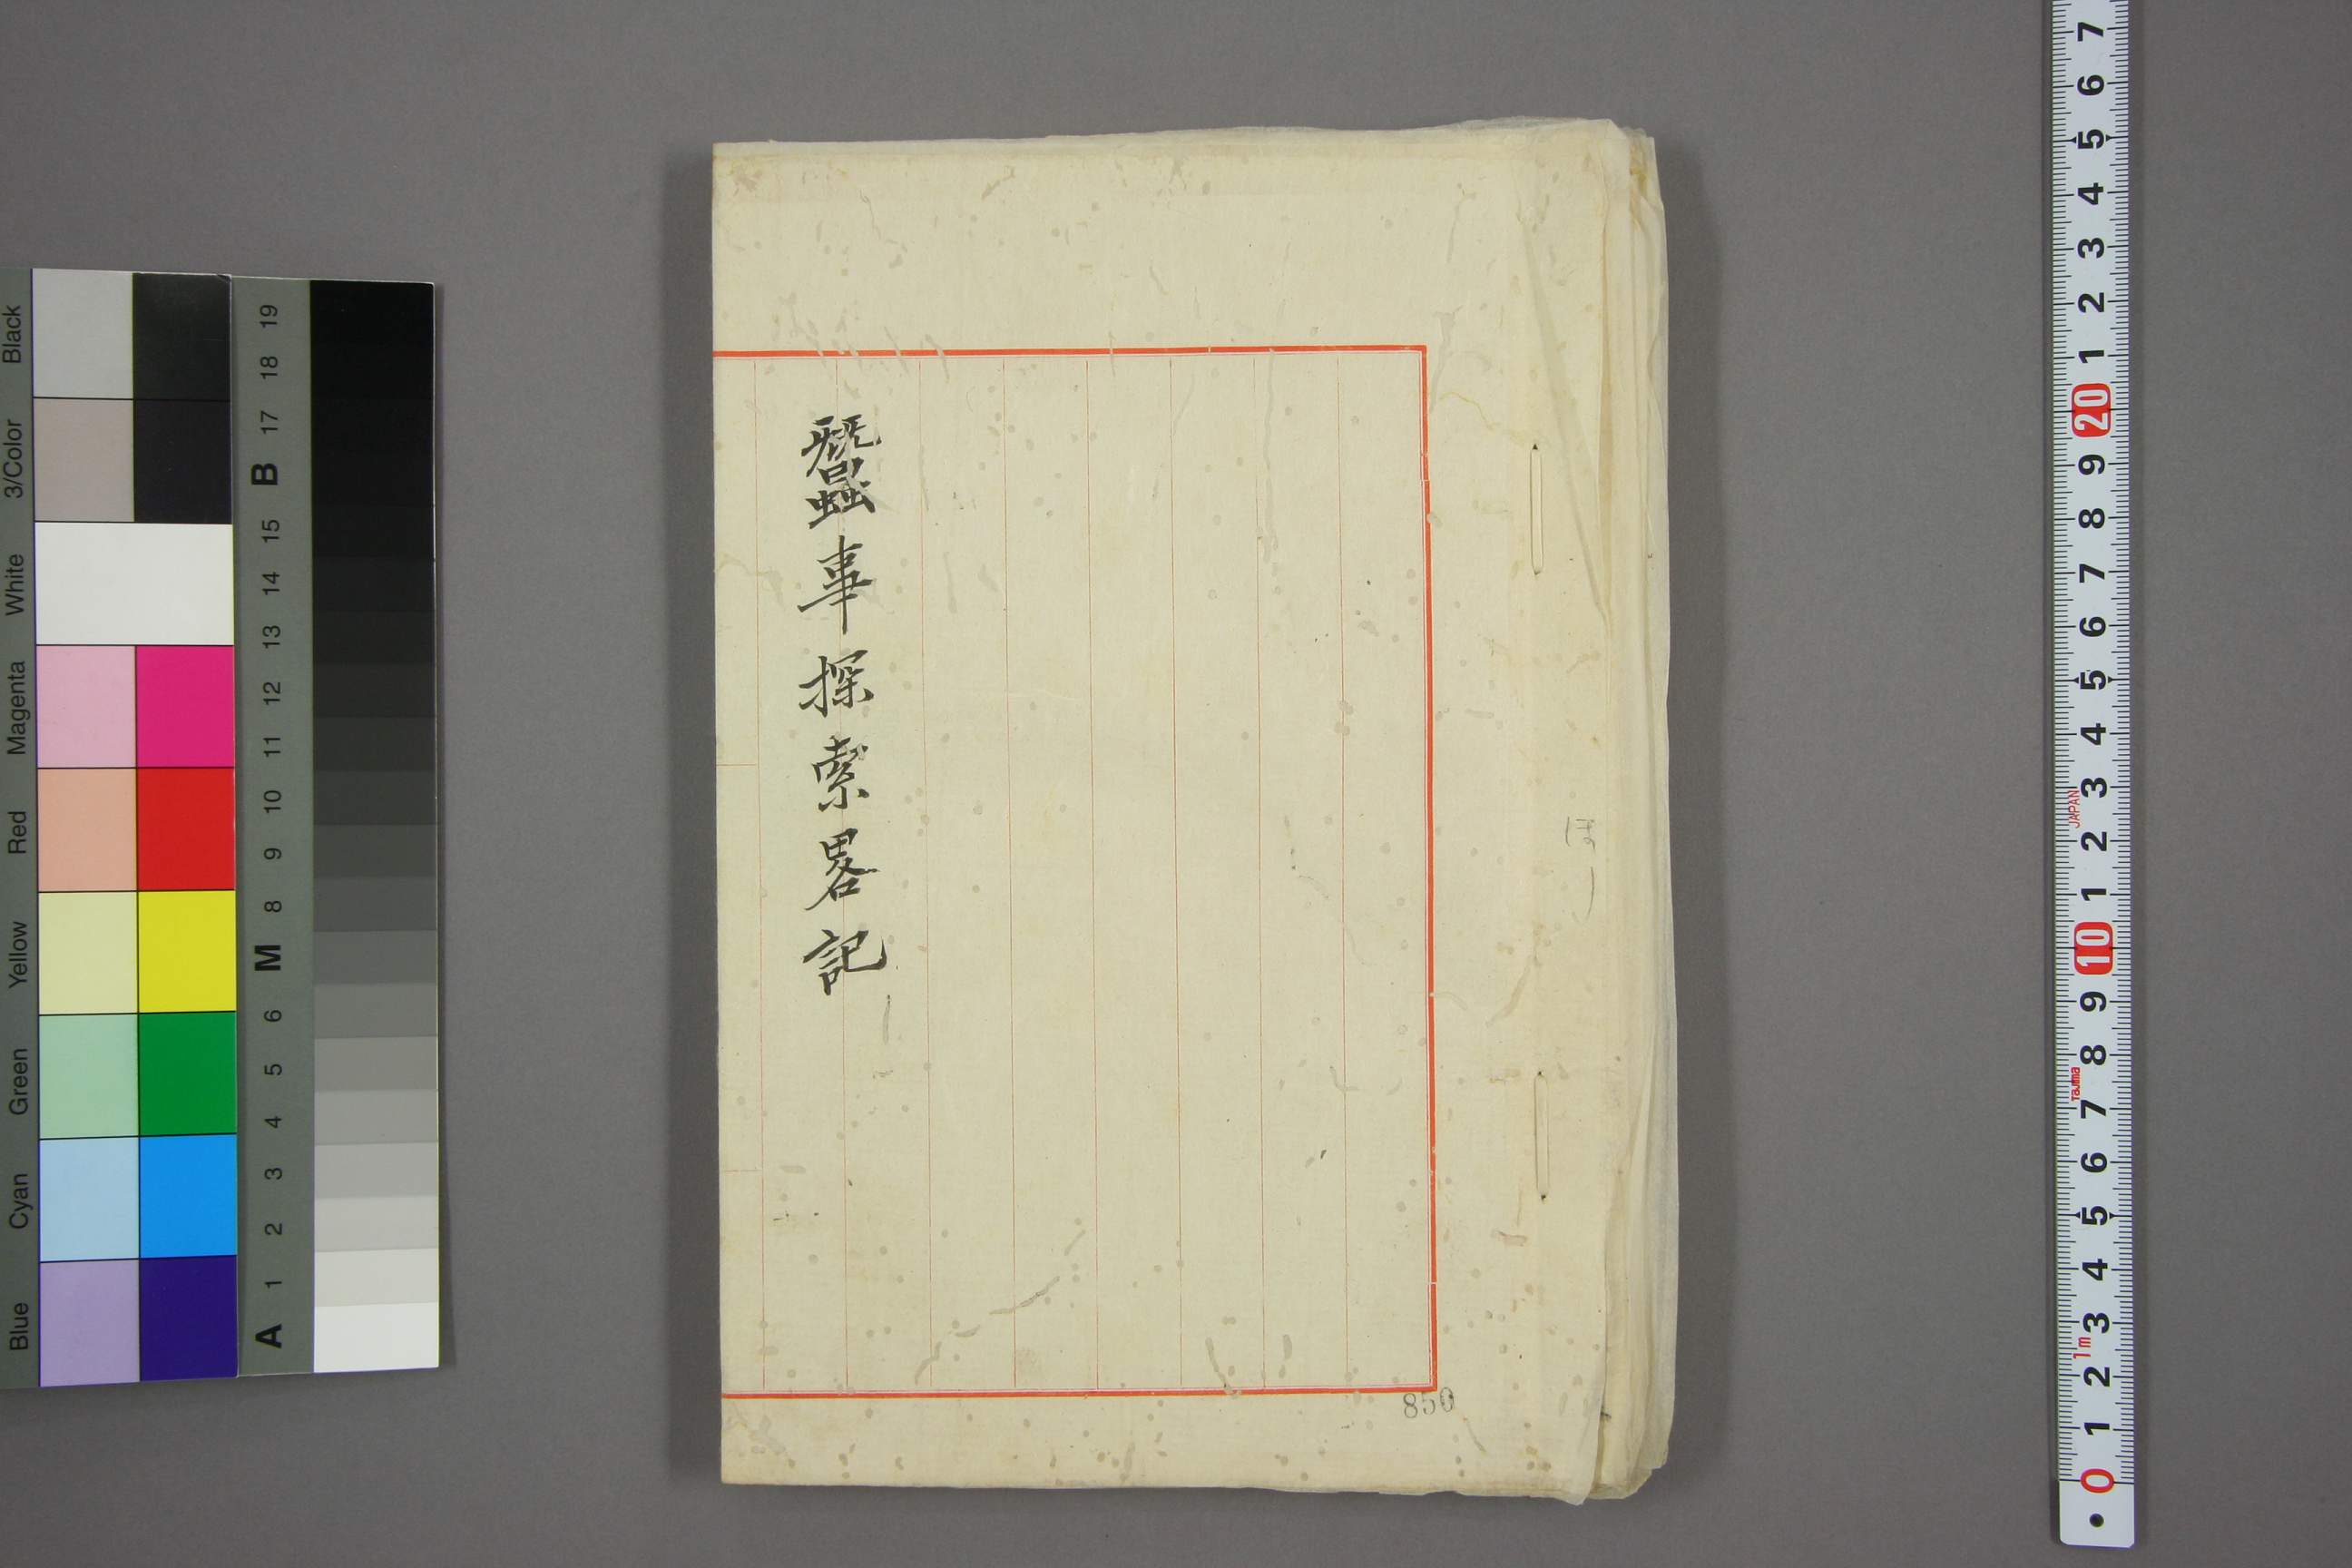 蠶事探索畧記
ほり
850
Black
3/Color
White
Magenta
Red
Yellow
Green
Cyan
Blue
19
18
17
B
15
14
13
12
11
10
9
8
M
6
5
4
3
2
1
A
7
6
5
4
3
2
1
20
9
8
7
6
5
4
3
JAPAN
2
1
10
9
8
Tajima
7
6
5
4
3
1m
2
1
0